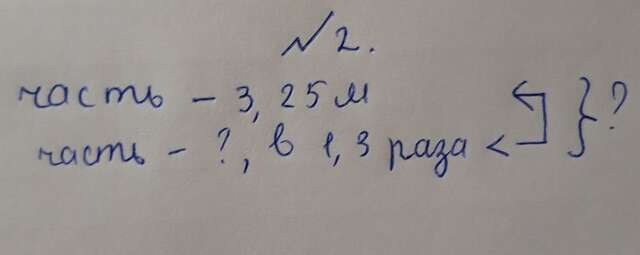 №2.
часть - 3,25м
часть - ?, в 1,3 раза < } ?